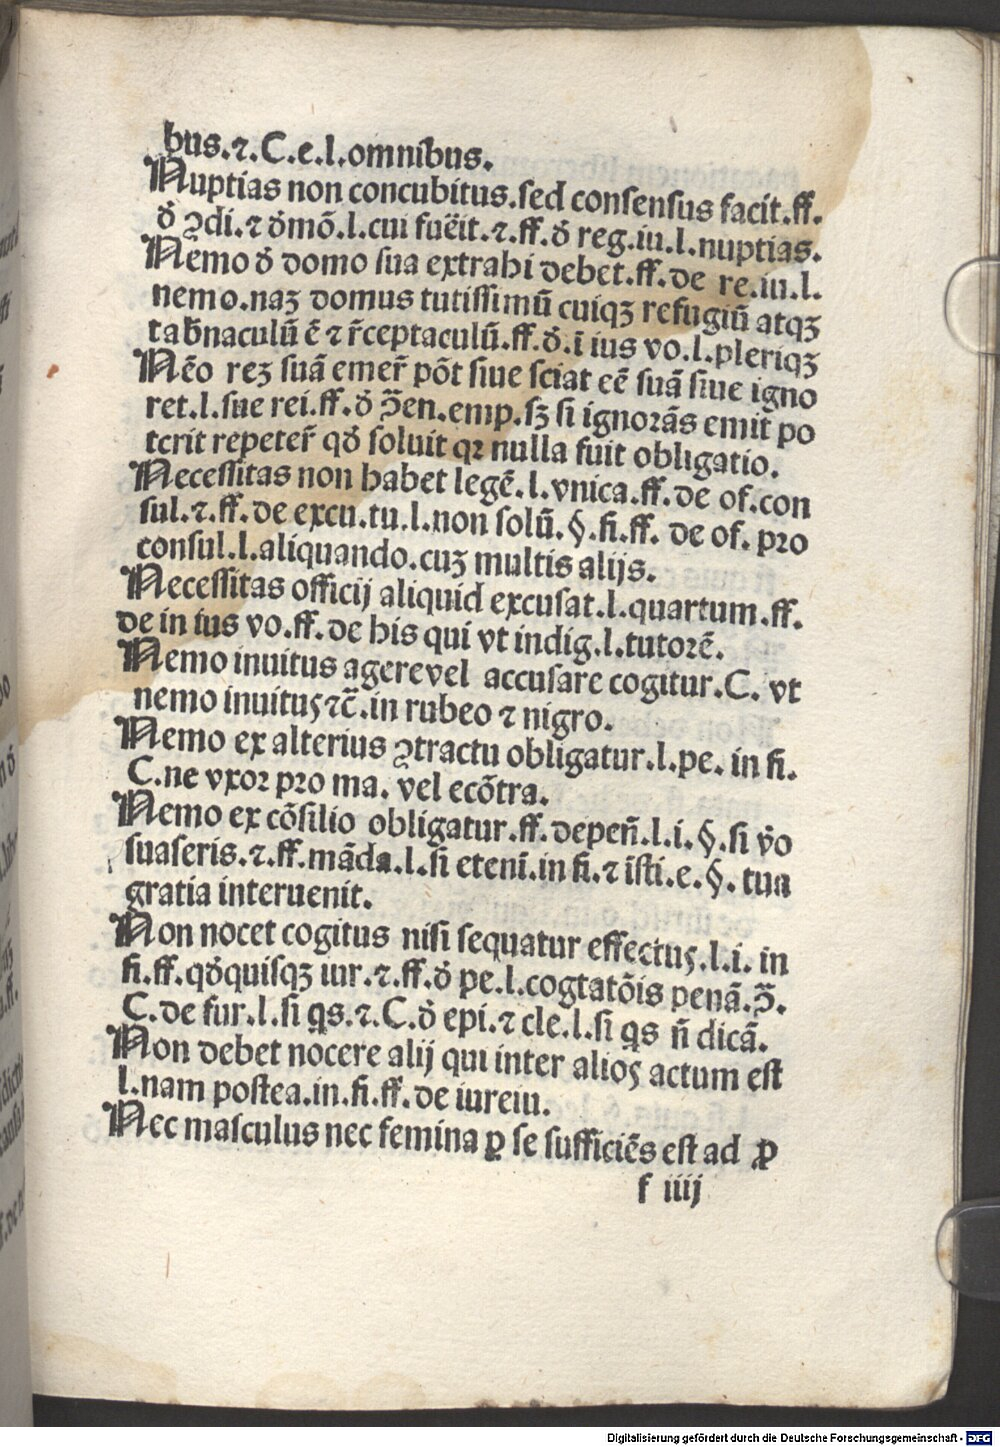 bus.⁊.C.e.l.omnibus.
Nuptias non concubitus.sed consensus facit.ff.
ꝺ̓ ꝯdi.⁊ ꝺ̓mō.l.cui fuĕit.⁊.ff.ꝺ̓ reg.iu.l.nuptias.
Nemo ꝺ̓ domo sua extrahi debet.ff.de re.iu.l.
nemo.naꝫ domus tutissimū cuiqꝫ refugiū atqꝫ
tab̄naculū ē ⁊ r̄ceptaculū.ff.ꝺ̓.ī ius vo.l.pleriqꝫ
Nēo reꝫ suā emer̄ pōt siue sciat eē suā siue igno
ret.l.sue rei.ff.ꝺ̓ ꝯ̄en.emp.sꝫ si ignorās emit po
terit repeter̄ qꝺ̓ soluit qꝛ nulla fuit obligatio.
Necessitas non habet legē.l.vnica.ff.de of.con
sul.⁊.ff.de excu.tu.l.non solū.§.fi.ff. de of. pꝛo
consul.l.aliquando.cuꝫ multis alijs.
Necessitas officij aliquid excusat.l.quartum.ff.
de in ius vo.ff.de his qui vt indig.l.tutoꝛē.
Nemo inuitus agerevel accusare cogitur.C. vt
nemo inuitus ⁊c̄.in rubeo ⁊ nigro.
Nemo ex alterius ꝯtractu obligatur.l.pe. in fi.
C.ne vxoꝛ pꝛo ma. vel ecōtra.
Nemo ex cōsilio obligatur.ff.depen̄.l.i.§.si v̓o
suaseris.⁊.ff.māda.l.si etenī.in fi.⁊ īsti.e.§. tua
gratia interuenit.
Non nocet cogitus nisi sequatur effectus.l.i. in
fi.ff.qꝺ̓quisqꝫ iur.⁊.ff.ꝺ̓ pe.l.cogtatōis penā.ꝯ̄.
C.de fur.l.si qs.⁊.C.ꝺ̓ epi.⁊ cle.l.si qs n̄ dicā.
Non debet nocere alij qui inter alios actum est
l.nam postea.in.fi.ff.de iureiu.
Nec masculus nec femina ꝑ se sufficiēs est ad ꝓ
f iiij
Digitalisierung gefördert durch die Deutsche Forschungsgemeinschaft - DFG